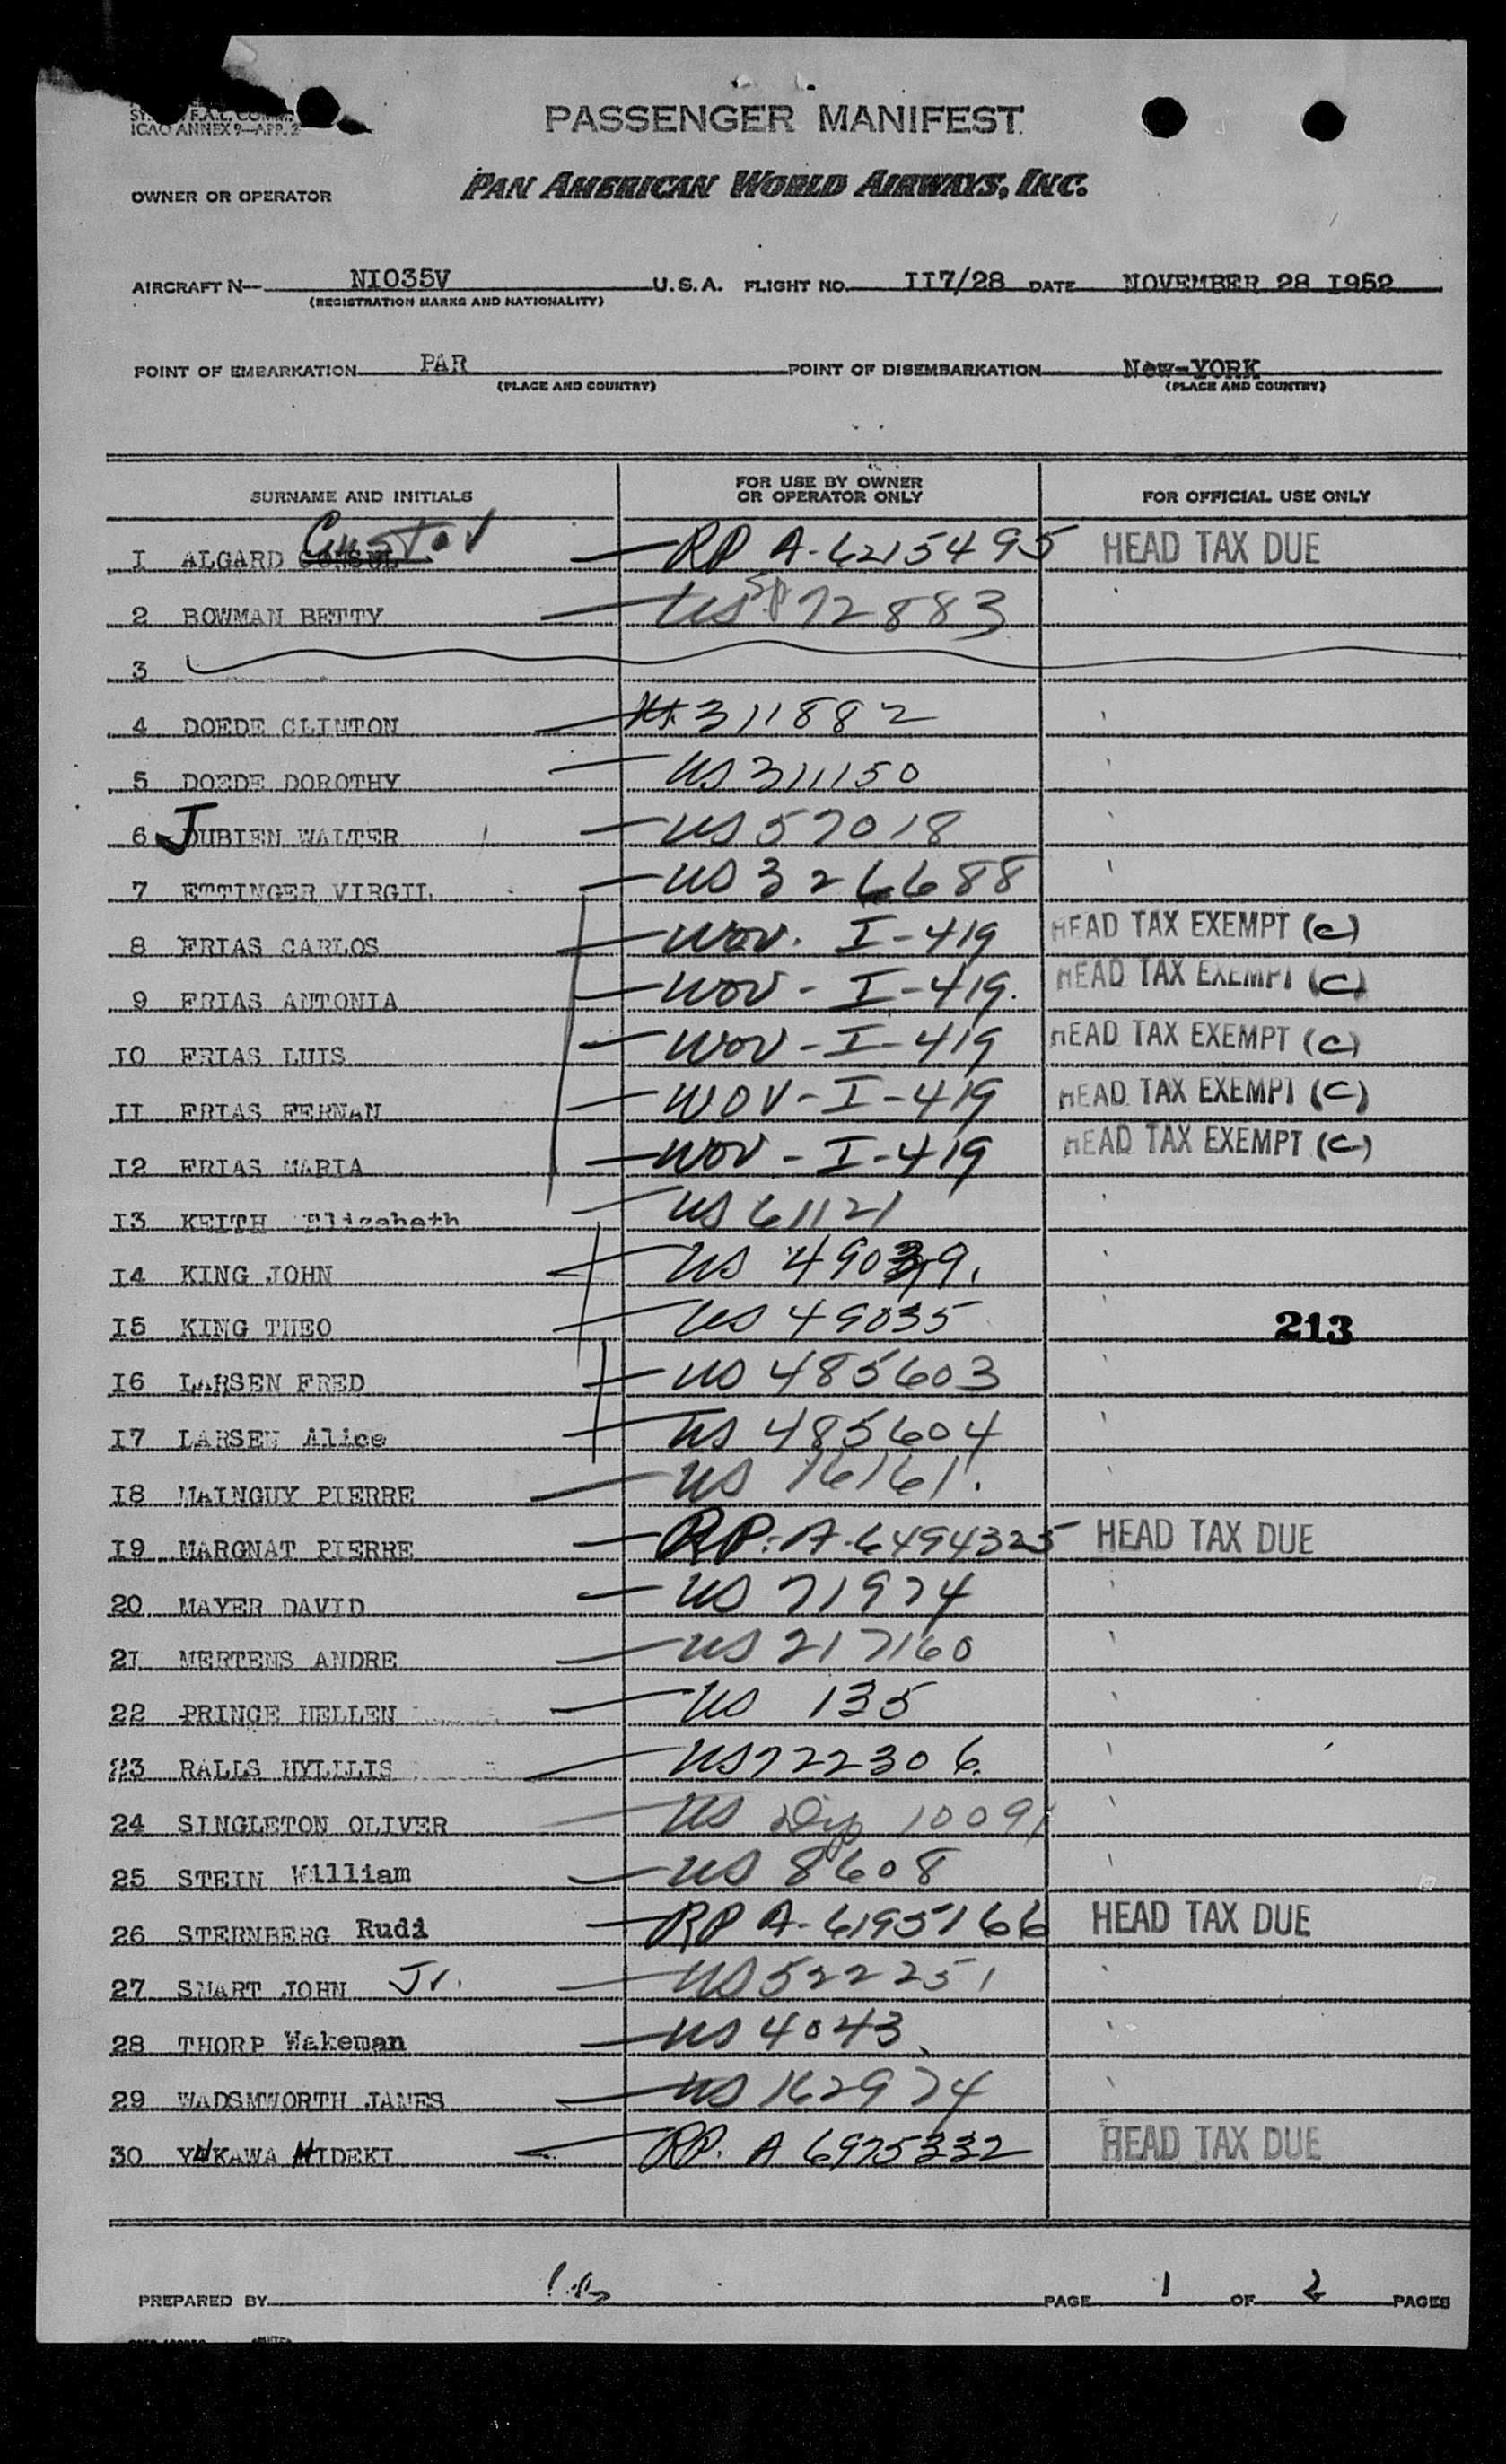 ICAO ANNEX 9—APP. 2
PASSENGER MANIFEST
OWNER OR OPERATOR PAN AMERICAN WORLD AIRWAYS, INC.
AIRCRAFT N— NI035V U.S.A. FLIGHT NO. II7/28 DATE NOVEMBER 28 I952
(REGISTRATION MARKS AND NATIONALITY)
POINT OF EMBARKATION PAR POINT OF DISEMBARKATION New-YORK
(PLACE AND COUNTRY) (PLACE AND COUNTRY)
SURNAME AND INITIALS FOR USE BY OWNER OR OPERATOR ONLY FOR OFFICIAL USE ONLY
Gustav
I ALGARD CONSUL RP A-6215495 HEAD TAX DUE
2 BOWMAN BETTY US Sp 72883
3
4 DOEDE CLINTON US 311882
5 DOEDE DOROTHY US 311150
6 JUBIEN WALTER US 57018
7 ETTINGER VIRGIL US 326688
8 FRIAS CARLOS WOV. I-419 HEAD TAX EXEMPT (C)
9 FRIAS ANTONIA WOV - I-419. HEAD TAX EXEMPT (C)
IO FRIAS LUIS WOV - I-419 HEAD TAX EXEMPT (C)
II FRIAS FERNAN WOV - I-419 HEAD TAX EXEMPT (C)
I2 FRIAS MARIA WOV - I-419 HEAD TAX EXEMPT (C)
I3 KEITH Elizabeth US 61121
I4 KING JOHN US
I5 KING THEO US 49035 213
I6 LARSEN FRED US 485603
I7 LARSEN Alice US 485604
I8 MAINGUY PIERRE US 16161.
I9 MARGNAT PIERRE RP. A-6494325 HEAD TAX DUE
20 MAYER DAVID US 71974
2I MERTENS ANDRE US 217160
22 PRINCE HELLEN US 135
23 RALLS HYLLLIS US 722306.
24 SINGLETON OLIVER US Dip 10091
25 STEIN William US 8608
26 STERNBERG Rudi RP A-6195166 HEAD TAX DUE
27 SMART JOHN Jr. US 522251
28 THORP Wakeman US 4043
29 WADSMWORTH JAMES US 162974
30 YUKAWA HIDEKI RP. A 6975332 HEAD TAX DUE
PREPARED BY PAGE 1 OF 2 PAGES